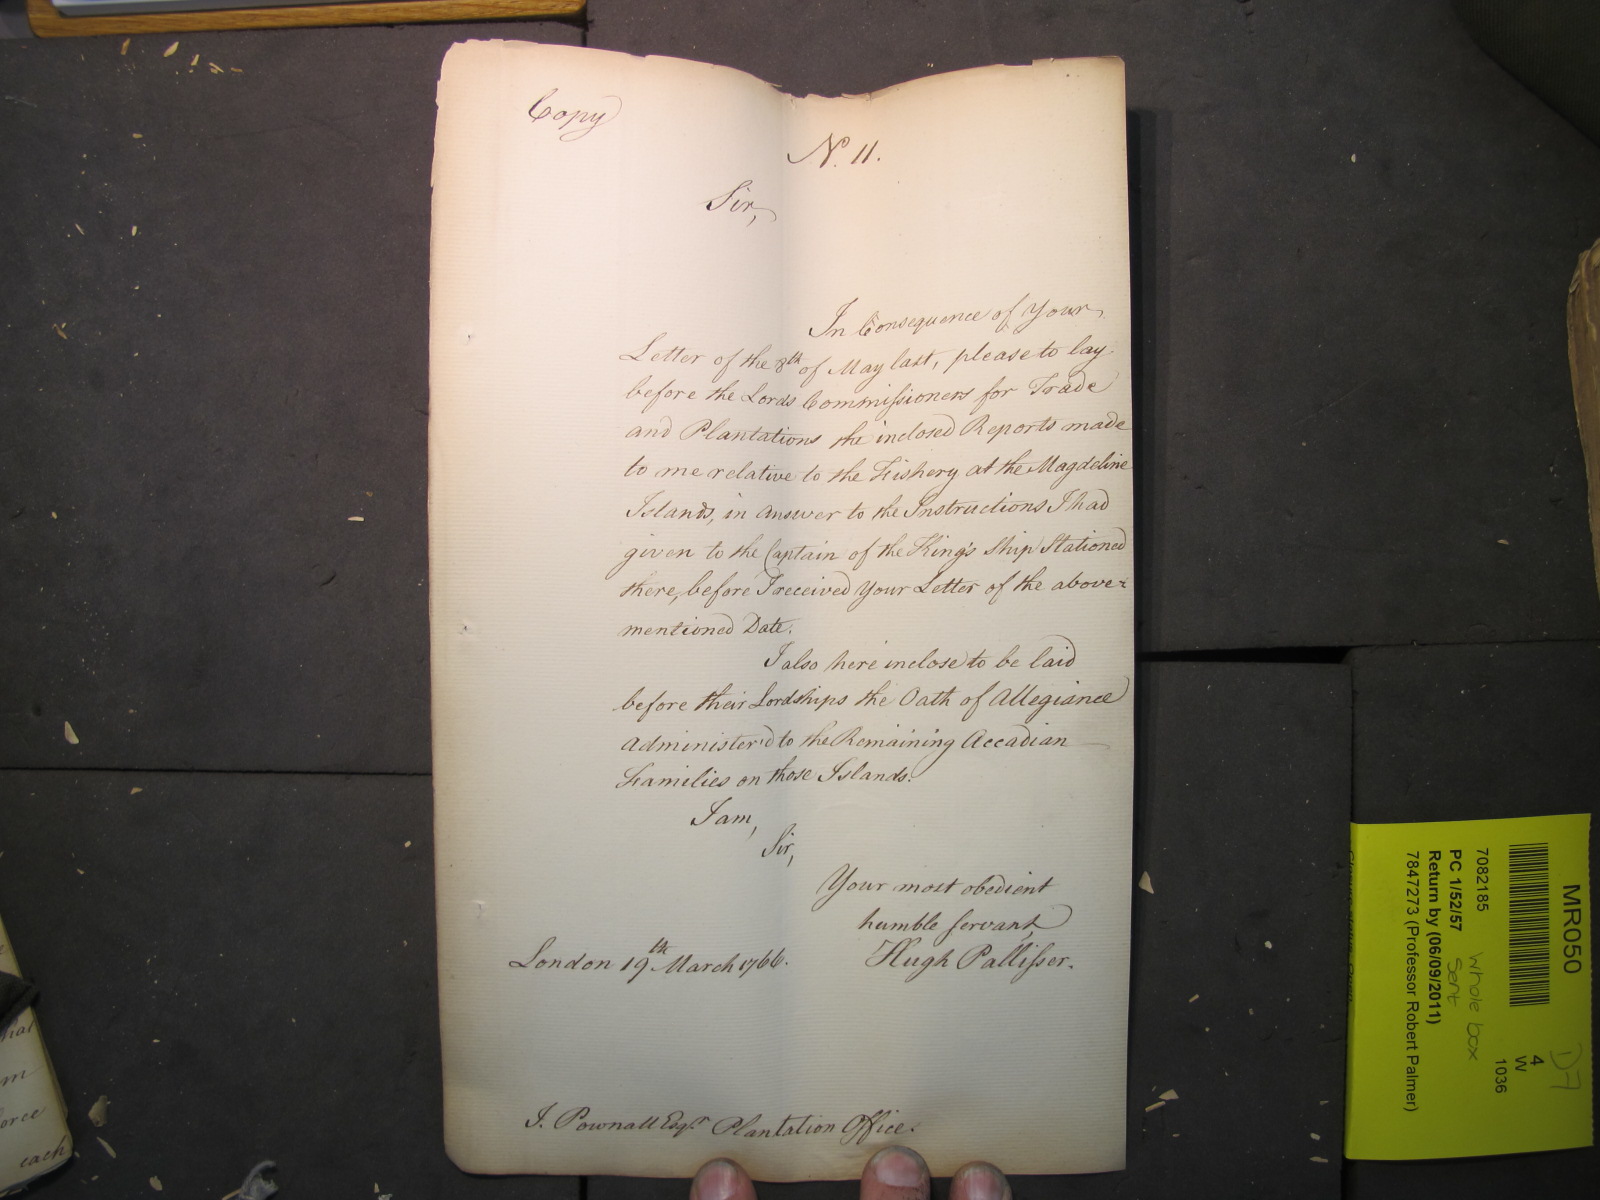 Copy
N.º 11.
Sir,
In Consequence of Your
Letter of the 8th of May last, please to lay
before the Lords Commissioners for Trade
and Plantations the inclosed Reports made
to me relative to the Fishery at the Magdeline
Islands, in answer to the Instructions I had
given to the Captain of the King's Ship Stationed
there, before I received Your Letter of the above=
mentioned Date.
I also here inclose to be laid
before their Lordships the Oath of Allegiance
administer'd to the Remaining Accadian
Families on those Islands.
I am,
Sir,
Your most obedient
humble servant,
Hugh Pallisser.
London 19th March 1766.
J. Pownall Esqr. Plantation Office.
MR050
7082185
PC 1/52/57
Return by (06/09/2011)
7847273 (Professor Robert Palmer)
whole box
sent
4
W
1036
D7
m
orce
each